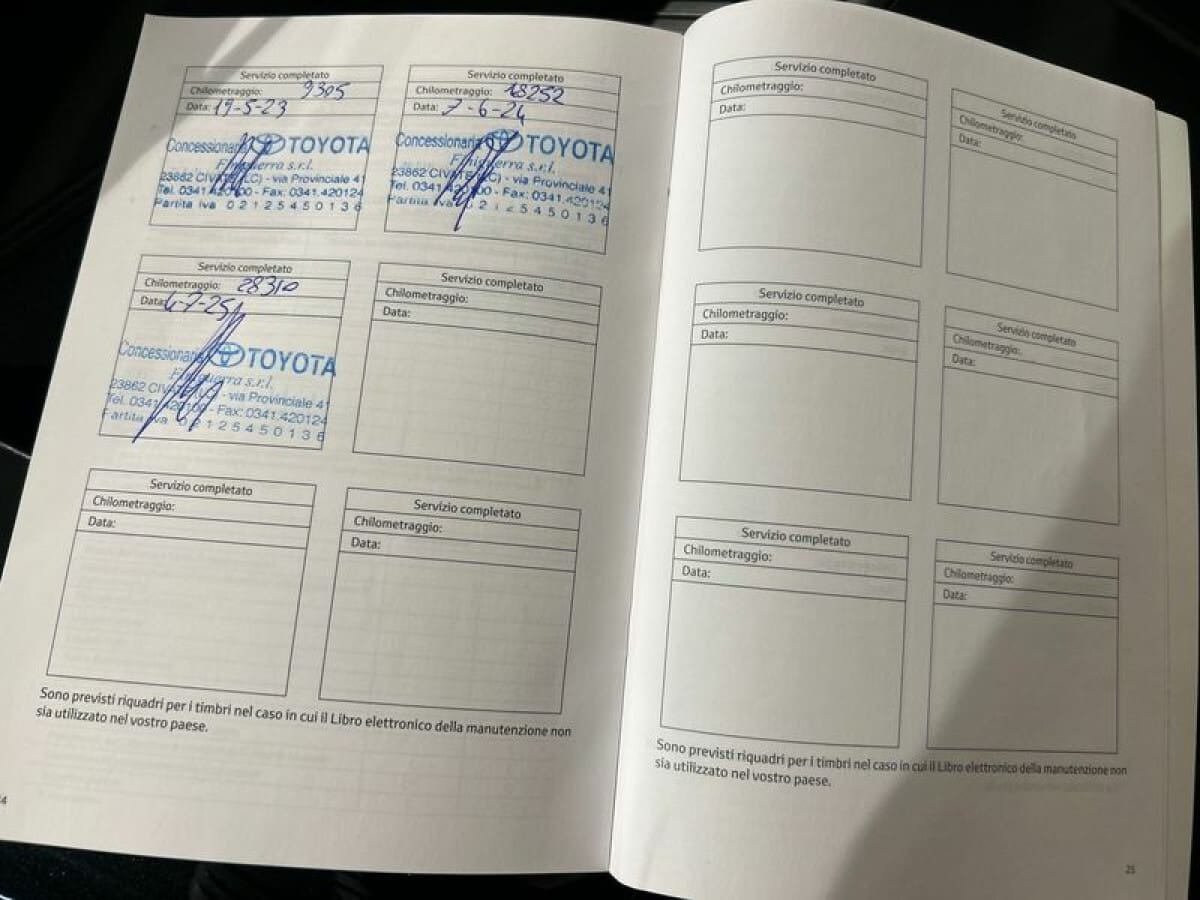 Servizio completato
Chilometraggio: 9305
Data: 19-5-23
Concessionaria TOYOTA
Finiguerra s.r.l.
23862 CIVATE (LC) - via Provinciale 41
Tel. 0341.420100 - Fax: 0341.420124
Partita iva 02125450136
Servizio completato
Chilometraggio: 18252
Data: 7-6-24
Concessionaria TOYOTA
Finiguerra s.r.l.
23862 CIVATE (LC) - via Provinciale 41
Tel. 0341.420100 - Fax: 0341.420124
Partita iva 02125450136
Servizio completato
Chilometraggio: 28310
Data: 4-7-25
Concessionaria TOYOTA
Finiguerra s.r.l.
23862 CIVATE (LC) - via Provinciale 41
Tel. 0341.420100 - Fax: 0341.420124
Partita iva 02125450136
Servizio completato
Chilometraggio:
Data:
Servizio completato
Chilometraggio:
Data:
Servizio completato
Chilometraggio:
Data:
Sono previsti riquadri per i timbri nel caso in cui il Libro elettronico della manutenzione non
sia utilizzato nel vostro paese.
Servizio completato
Chilometraggio:
Data:
Servizio completato
Chilometraggio:
Data:
Servizio completato
Chilometraggio:
Data:
Servizio completato
Chilometraggio:
Data:
Servizio completato
Chilometraggio:
Data:
Servizio completato
Chilometraggio:
Data:
Sono previsti riquadri per i timbri nel caso in cui il Libro elettronico della manutenzione non
sia utilizzato nel vostro paese.
25